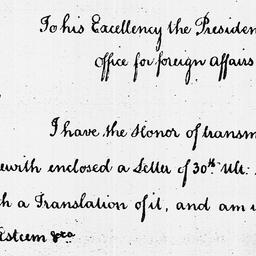 To his Excellency the Presiden
Office for foreign Affairs
I have the Honor of transm
ewith enclosed a Letter of 30th Ult:
h a Translation of it, and am
Esteem &ca